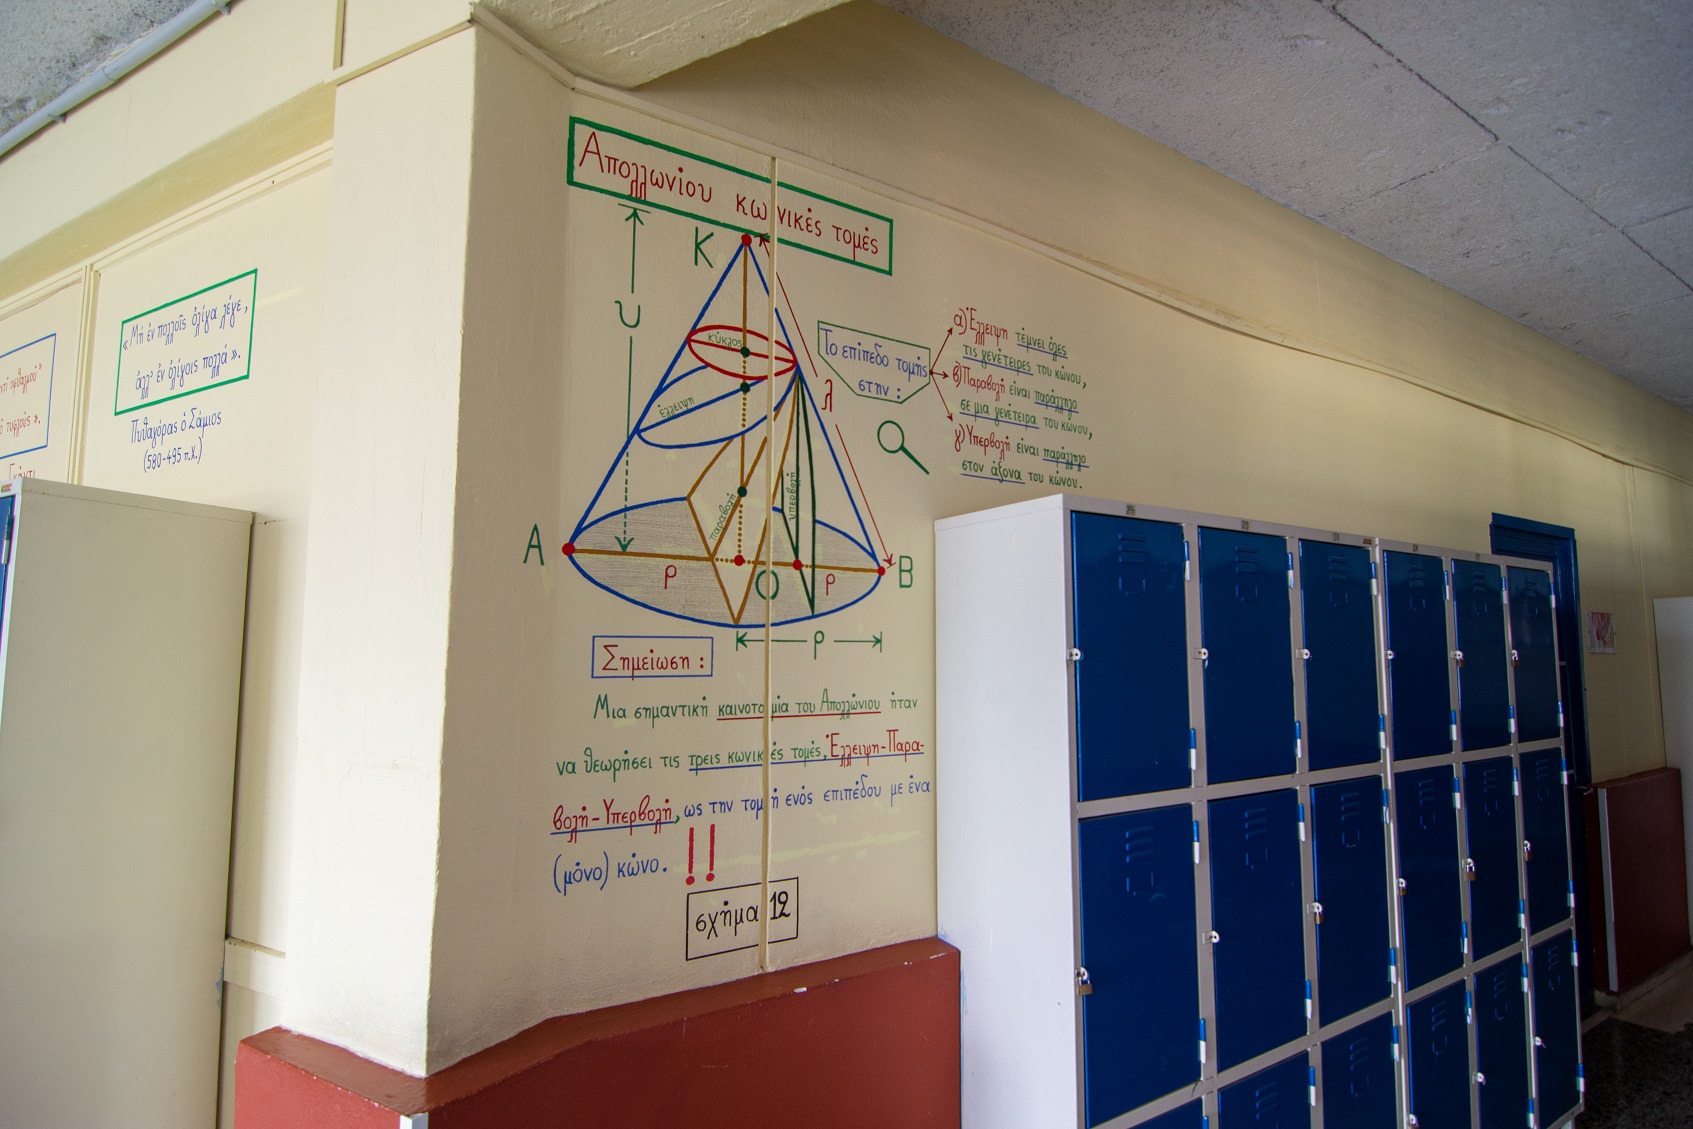 «Μὴ ἐν πολλοῖς ὀλίγα λέγε,
ἀλλ' ἐν ὀλίγοις πολλά».
Πυθαγόρας ὁ Σάμιος
(580-495 π.Χ.)
Απολλωνίου κωνικές τομές
Κ
υ
κύκλος
έλλειψη
λ
παραβολή
υπερβολή
Α
ρ
Ο
ρ
Β
ρ
Το επίπεδο τομής
στην :
α) Έλλειψη τέμνει όλες
τις γενέτειρες του κώνου,
β) Παραβολή είναι παράλληλο
σε μια γενέτειρα του κώνου,
γ) Υπερβολή είναι παράλληλο
στον άξονα του κώνου.
Σημείωση :
Μια σημαντική καινοτομία του Απολλώνιου ήταν
να θεωρήσει τις τρεις κωνικές τομές, Έλλειψη-Παρα-
βολή-Υπερβολή, ως την τομή ενός επιπέδου με ένα
(μόνο) κώνο. !!
σχήμα 12